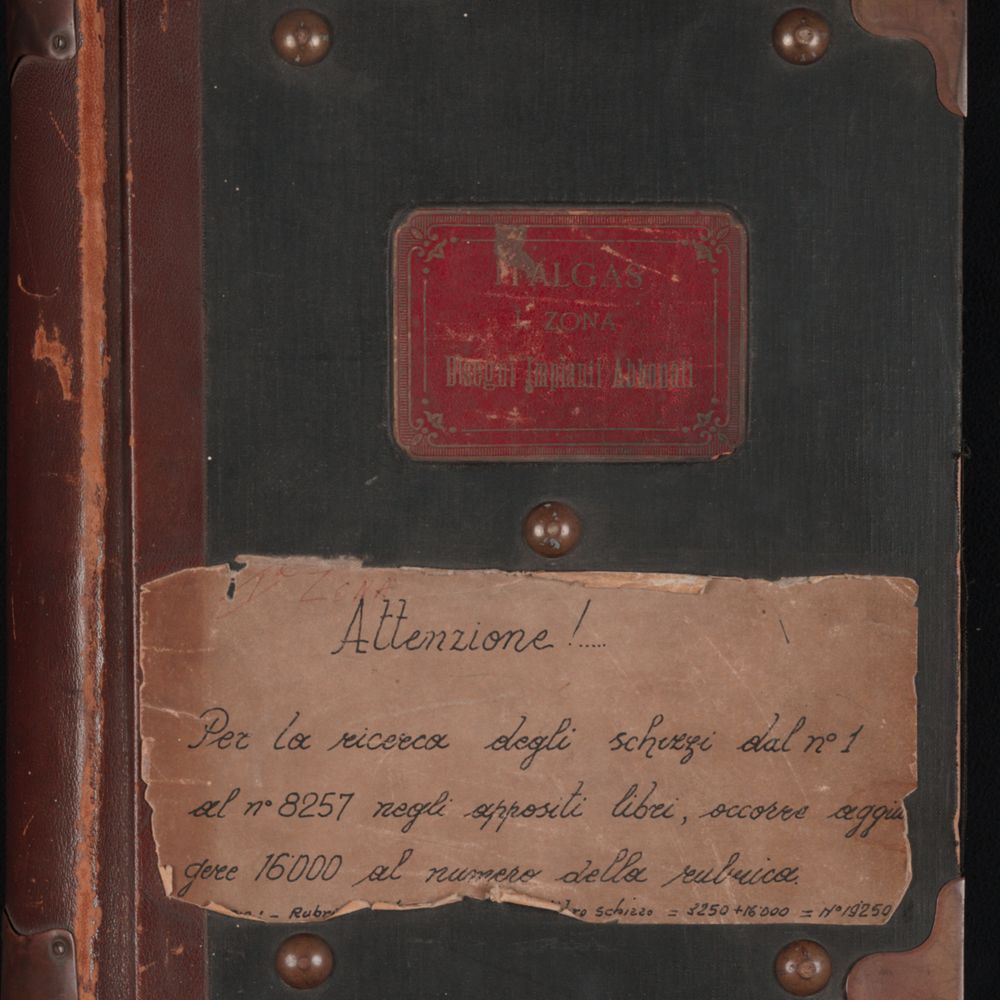 ITALGAS
I. ZONA
Disegni Impianti Abbonati
Iª ZONA
Attenzione !.....
Per la ricerca degli schizzi dal n° 1
al n° 8257 negli appositi libri, occorre aggiun
gere 16'000 al numero della rubrica.
schizzo = 3250 + 16'000 = N° 19'250